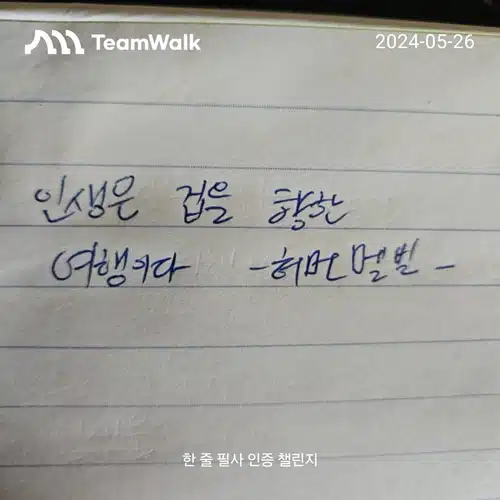 TeamWalk
2024-05-26
인생은 겁을 향한
여행이다 -허먼멜빌-
한 줄 필사 인증 챌린지